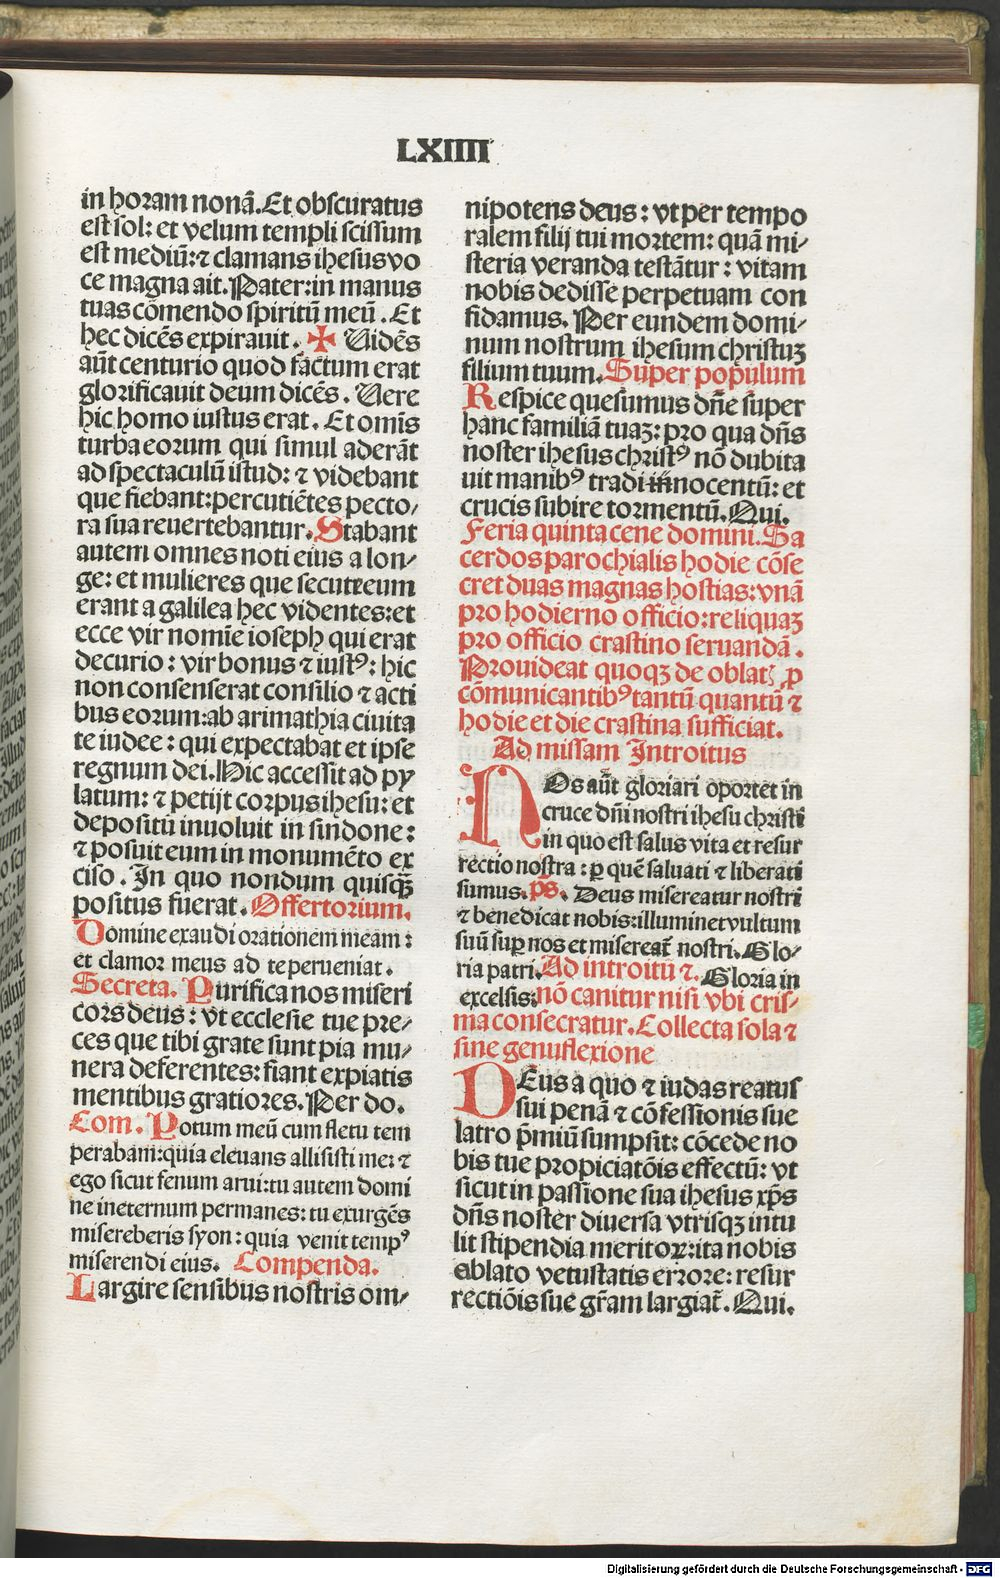 LXIIII
in horam nonã. Et obscuratus
est sol: et velum templi scissum
est mediũ: ⁊ clamans ihesus vo
ce magna ait. Pater: in manus
tuas cõmendo spiritũ meũ. Et
hec dicẽs expirauit. ✠ Uidẽs
aũt centurio quod factum erat
glorificauit deum dicẽs. Uere
hic homo iustus erat. Et omĩs
turba eorum qui simul aderãt
ad spectaculũ istud: ⁊ videbant
que fiebant: percutiẽtes pecto/
ra sua reuertebantur. Stabant
autem omnes noti eius a lon/
ge: et mulieres que secute eum
erant a galilea hec videntes: et
ecce vir nomĩe ioseph qui erat
decurio: vir bonus ⁊ iustꝰ: hic
non consenserat consilio ⁊ acti
bus eorum: ab arimathia ciuita
te iudee: qui expectabat et ipse
regnum dei. Hic accessit ad py
latum: ⁊ petijt corpus ihesu: et
depositũ inuoluit in sindone:
⁊ posuit eum in monumẽto ex
ciso. In quo nondum quisqꝫ̃
positus fuerat. Offertorium.
Domine exaudi orationem meam:
et clamor meus ad te perueniat.
Secreta. Purifica nos miseri
cors deus: vt ecclesie tue pre/
ces que tibi grate sunt pia mu/
nera deferentes: fiant expiatis
mentibus gratiores. Per do.
Com. Potum meũ cum fletu tem
perabam: quia eleuans allisisti me: ⁊
ego sicut fenum arui: tu autem domi
ne in eternum permanes: tu exurgẽs
misereberis syon: quia venit tempꝰ
miserendi eius. Compenda.
Largire sensibus nostris om/
nipotens deus: vt per tempo
ralem filij tui mortem: quã mi/
steria veranda testãtur: vitam
nobis dedisse perpetuam con
fidamus. Per eundem domi/
num nostrum ihesum christuꝫ
filium tuum. Super populum
Respice quesumus dñe super
hanc familiã tuaꝫ: pro qua dñs
noster ihesus christꝰ nõ dubita
uit manibꝰ tradi innocentũ: et
crucis subire tormentũ. Qui.
Feria quinta cene domini. Sa
cerdos parochialis hodie cõse
cret duas magnas hostias: vnã
pro hodierno officio: reliquaꝫ
pro officio crastino seruandã.
Prouideat quoqꝫ de oblat̃ ꝓ
cõmunicantibꝰ tantũ quantũ ⁊
hodie et die crastina sufficiat.
Ad missam Introitus
NOs aũt gloriari oportet in
cruce dñi nostri ihesu christi
in quo est salus vita et resur
rectio nostra: ꝑ quẽ saluati ⁊ liberati
sumus. p̃s. Deus misereatur nostri
⁊ benedicat nobis: illuminet vultum
suũ suꝑ nos et misereat̃ nostri. Glo/
ria patri. Ad introitũ ⁊. Gloria in
excelsis: nõ canitur nisi vbi cris/
ma consecratur. Collecta sola ⁊
sine genuflexione
DEus a quo ⁊ iudas reatus
sui penã ⁊ cõfessionis sue
latro p̃miũ sumpsit: cõcede no
bis tue propiciatõis effectũ: vt
sicut in passione sua ihesus xp̃s
dñs noster diuersa vtrisqꝫ intu
lit stipendia meritoꝝ: ita nobis
ablato vetustatis errore: resur
rectiõis sue gr̃am largiat̃. Qui.
Digitalisierung gefördert durch die Deutsche Forschungsgemeinschaft - DFG